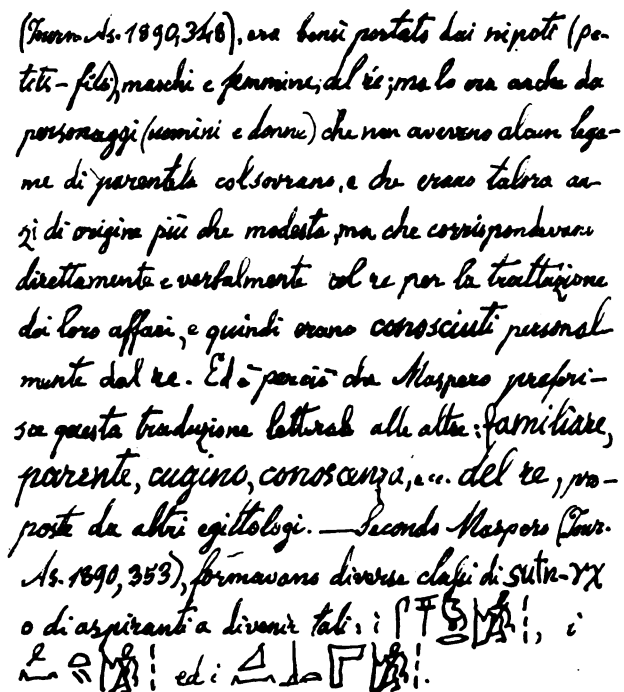 (Journ. As. 1890, 348), era bensì portato dai nipoti (pe-
tits-fils), maschi e femmine, del re; ma lo era anche da
personaggi (uomini e donne) che non avevano alcun lega-
me di parentela col sovrano, e che erano talora an-
zi di origine più che modesta, ma che corrispondevano
direttamente e verbalmente col re per la trattazione
dei loro affari, e quindi erano conosciuti personal-
mente dal re. Ed è perciò che Maspero preferi-
sce questa traduzione letterale alle altre: familiare,
parente, cugino, conoscenza, ecc. del re, pro-
poste da altri egittologi. — Secondo Maspero (Jour.
As. 1890, 353), formavano diverse classi di sutn-rχ
o di aspiranti a divenir tali: i
, i
ed i